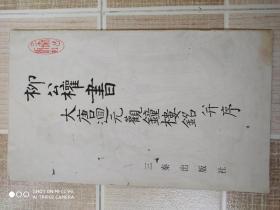 柳公權書
大唐迴元觀鐘樓銘并序
三秦出版社